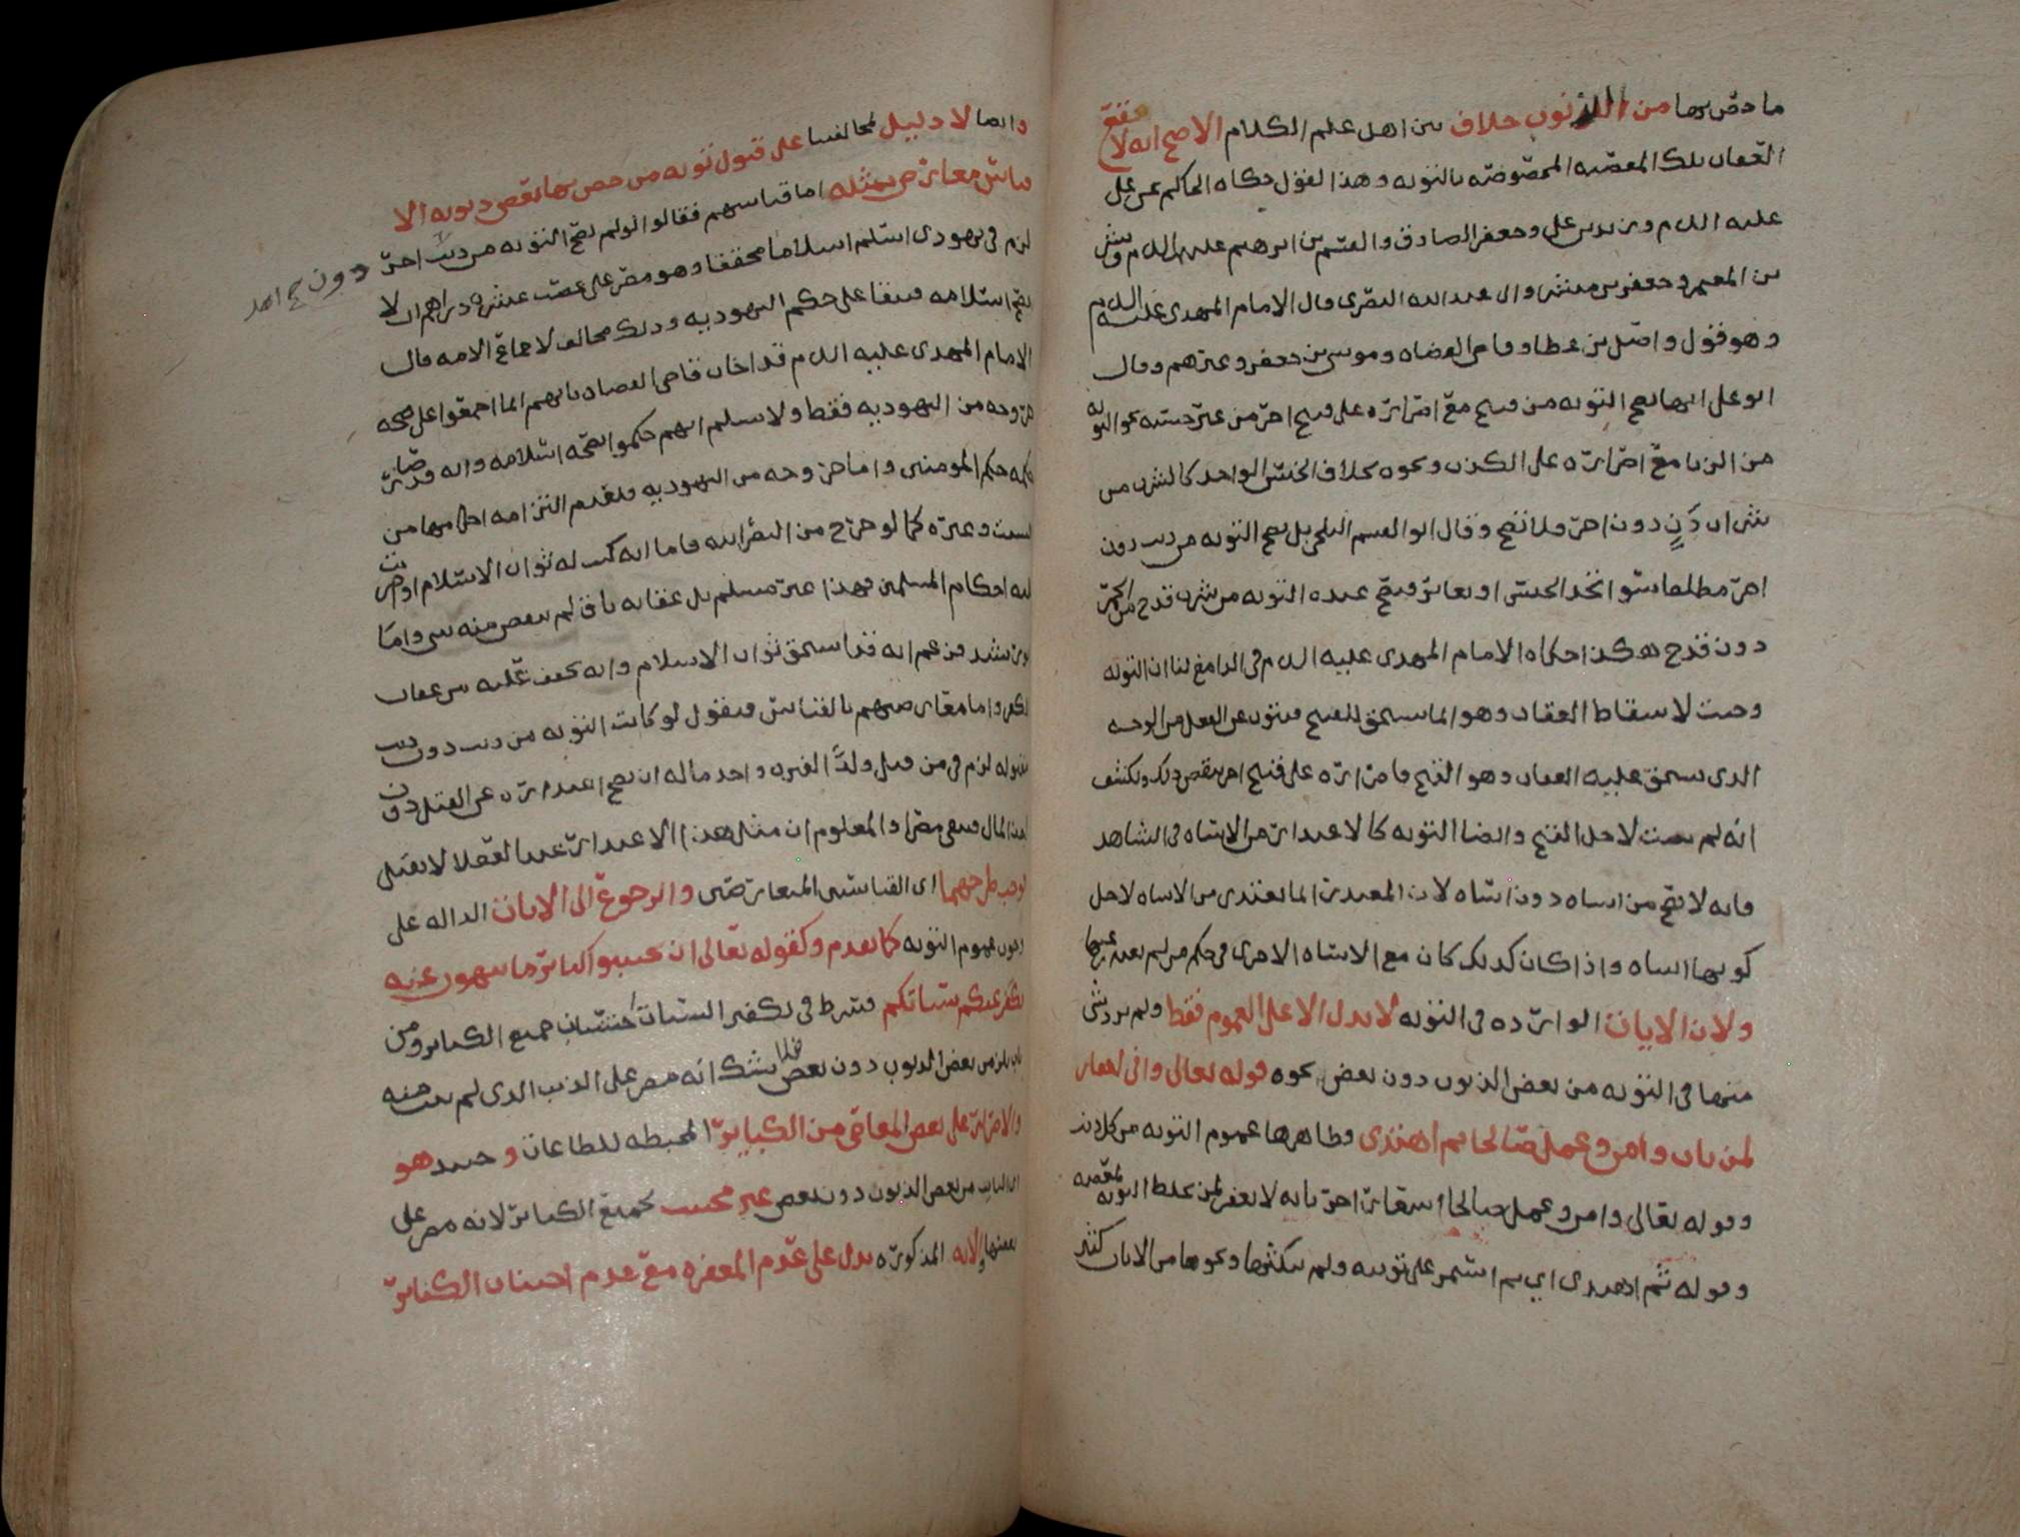 ما خص بها من الذنوب خلاف بين اهل علم الكلام الاصح انه لا يقع
العقاب بتلك المعصيه المخصوصه بالتوبه وهذا القول حكاه الحاكم عن علي
عليه السلم وزيد بن علي وجعفر الصادق والقسم بن ابرهيم عليهم السلم وبشر
بن المعتمر وجعفر بن مبشر وابي عبد الله البصري قال الامام المهدي عليه السلم
وهو قول واصل بن عطا وقاضي القضاه وموسى بن جعفر وغيرهم وقال
ابو علي انها تصح التوبه من قبيح مع اصراره على قبيح اخر من غير جنسه نحو التوبه
من الزنا مع اصراره على الكذب ونحوه بخلاف الجنس الواحد كالشرب من
شراب دَنٍ دون اخر فلا تصح وقال ابو القسم البلخي بل تصح التوبه من ذنب دون
اخر مطلقا سوا اتحد الجنس او تغاير فتصح عنده التوبه من شرب قدح من الخمر
دون قدح هكذا حكاه الامام المهدي عليه السلم في الدامغ لنا ان التوبه
وجبت لاسقاط العقاب وهو انما يستحق للقبيح فيتوب عن الفعل من الوجه
الذي يستحق عليه العقاب وهو القبح فاصراره على قبيح اخر ينقض ذلك ويكشف
انه لم يتب لاجل القبح وايضا التوبه كالاعتذار من الاساه في الشاهد
فانه لا يصح من اساه دون اساه لان المعتذر انما يعتذر من الاساه لاجل
كونها اساه واذا كان كذلك كان مع الاساه الاخرى في حكم من لم يعتذر عنها
ولان الايات الوارده في التوبه لا تدل الا على العموم فقط ولم يرد شي
منها في التوبه من بعض الذنوب دون بعض نحوه قوله تعالى واني لغفار
لمن تاب وامن وعمل صالحا ثم اهتدى وظاهرها عموم التوبه من كل ذنب
وقوله تعالى وامن وعمل صالحا اشعار اخر بانه لا يغفر لمن خلط التوبه بمعصيه
وقوله ثم اهتدى اي ثم استمر على توبته ولم ينكثها ونحوها من الايات كثير
وايضا لا دليل لمخالفينا على قبول توبه من خص بها بعض ذنوبه الا
قياس معارض بمثله اما قياسهم فقالوا لو لم تصح التوبه من ذنب اخر
دون
لزم في يهودي اسلم اسلاما محققا وهو مصر على غصب عشره دراهم ان لا
يصح اسلامه فيبقا على حكم اليهوديه وذلك مخالف لاجماع الامه قال
الامام المهدي عليه السلم قد اجاب قاضي القضاه بانهم انما اجمعوا على صحه
خروجه من اليهوديه فقط ولا نسلم انهم حكموا بصحه اسلامه وانه قد صار
حكمه حكم المومنين واما خروجه من اليهوديه فلعدم التزامه احكامها من
السبت وغيره كما لو خرج من النصرانيه فاما انه كتب له ثواب الاسلام او جرت
عليه احكام المسلمين فهذا غير مسلم بل عقابه باق لم ينقص منه شي واما
ابو رشيد فزعم انه قد استحق ثواب الاسلام وانه يخفف عليه من عقاب
الكفر واما معارضتهم بالقياس فنقول لو كانت التوبه من ذنب دون ذنب
مقبوله لزم في من قتل ولدًا لغيره واخذ ماله ان يصح اعتذاره عن القتل دون
اخذ المال فيبقى مصرا والمعلوم ان مثل هذا الاعتذار عند العقلا لا يقبل
فوجب طرحهما اي القياسين المتعارضين والرجوع الى الايات الداله على
وجوب عموم التوبه كما تقدم وكقوله تعالى ان تجتنبوا كباير ما تنهون عنه
نكفر عنكم سياتكم فشرط في تكفير السيات اجتناب جميع الكباير ومن
تاب من بعض الذنوب دون بعض فلا شك انه مصر على الذنب الذي لم يتب منه
والاصرار على بعض المعاصي من الكباير المحبطه للطاعات وحينئذ هو
اي التايب من بعض الذنوب دون بعض غير مجتنب لجميع الكباير لانه مصر على
بعضها والايه المذكوره تدل على عدم المغفره مع عدم اجتناب الكباير